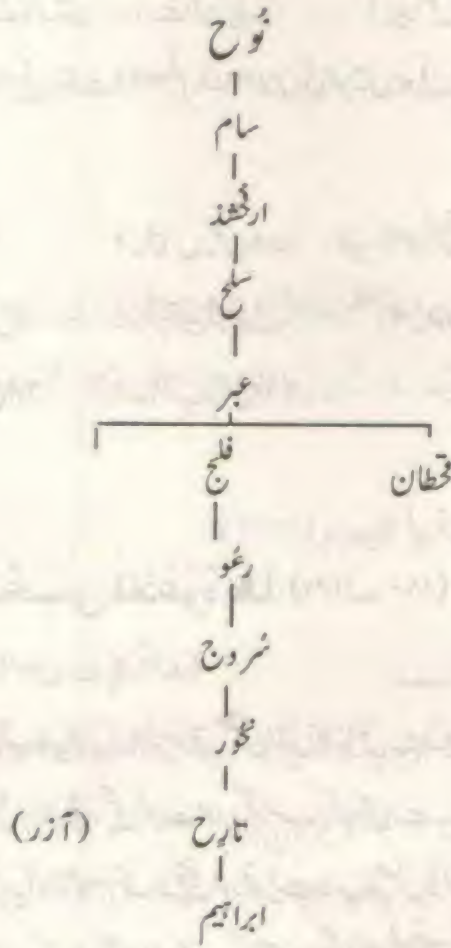 نُوح
سام
ارفخشد
سلح
عبر
قحطان فلج
رعُو
سُروج
نحُور
تارح (آزر)
ابراہیم